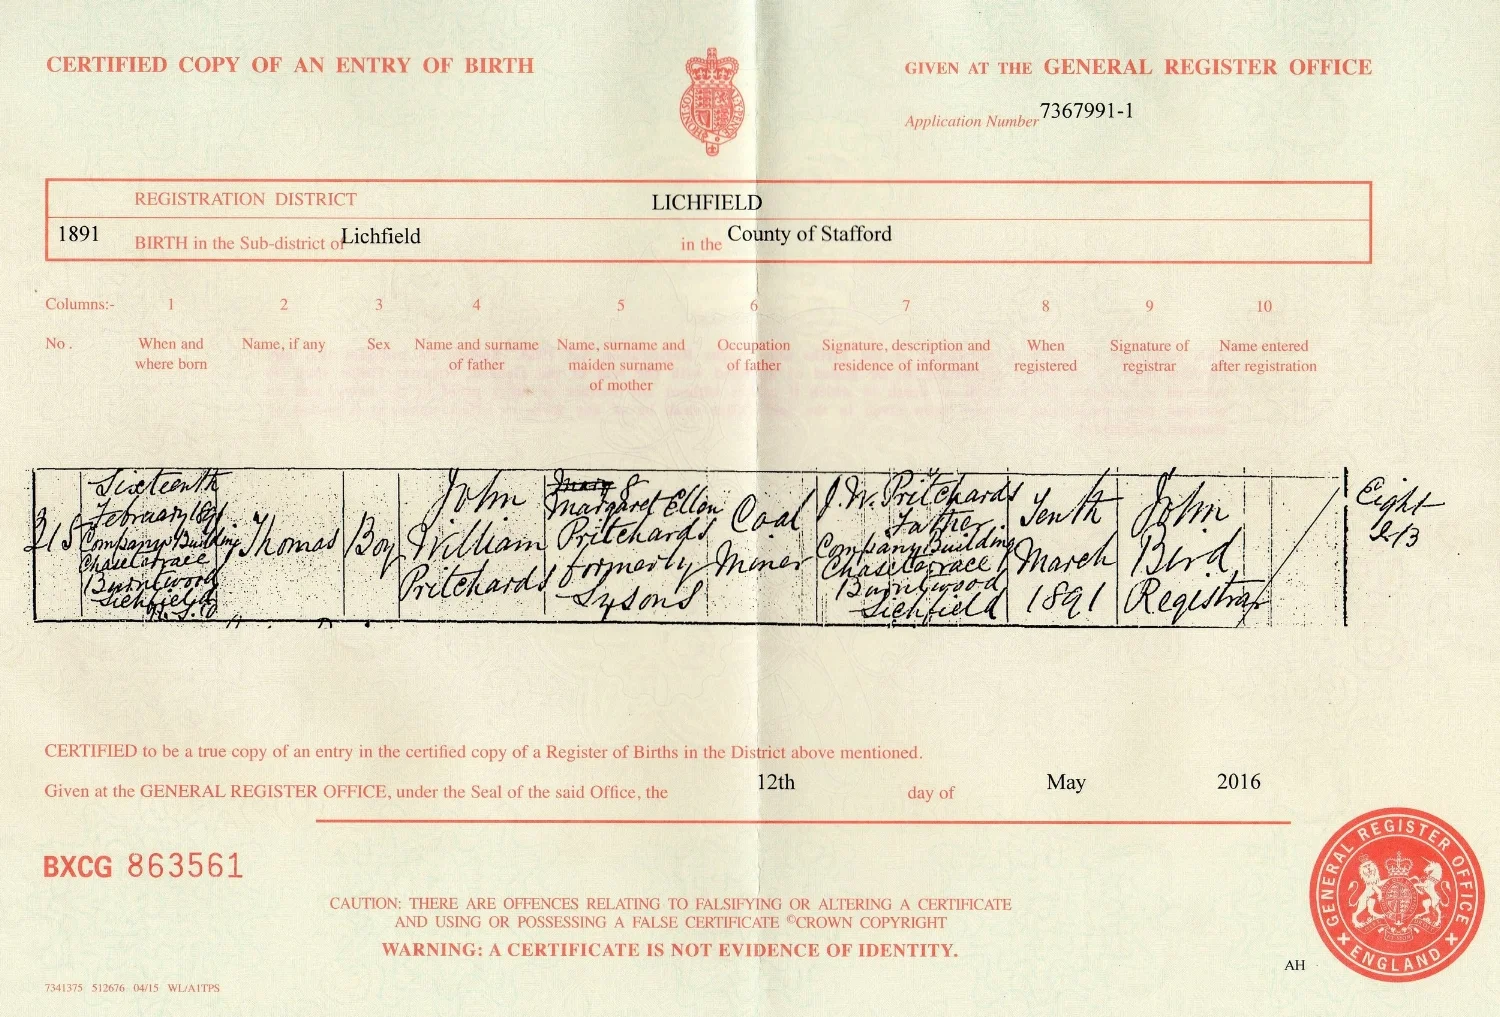 CERTIFIED COPY OF AN ENTRY OF BIRTH
GIVEN AT THE GENERAL REGISTER OFFICE
Application Number 7367991-1
REGISTRATION DISTRICT LICHFIELD
1891 BIRTH in the Sub-district of Lichfield in the County of Stafford
Columns:- 1 2 3 4 5 6 7 8 9 10
No. When and where born
Name, if any
Sex
Name and surname of father
Name, surname and maiden surname of mother
Occupation of father
Signature, description and residence of informant
When registered
Signature of registrar
Name entered after registration
215
Sixteenth
February 1891
Company Building
Chaseterrace
Burntwood
Lichfield
Thomas
Boy
John
William
Pritchards
Margaret Ellen
Pritchards
formerly
Lysons
Coal
Miner
J. W. Pritchards
Father
Company Building
Chaseterrace
Burntwood
Lichfield
Tenth
March
1891
John
Bird
Registrar
Eight
CERTIFIED to be a true copy of an entry in the certified copy of a Register of Births in the District above mentioned.
Given at the GENERAL REGISTER OFFICE, under the Seal of the said Office, the 12th day of May 2016
BXCG 863561
CAUTION: THERE ARE OFFENCES RELATING TO FALSIFYING OR ALTERING A CERTIFICATE
AND USING OR POSSESSING A FALSE CERTIFICATE ©CROWN COPYRIGHT
WARNING: A CERTIFICATE IS NOT EVIDENCE OF IDENTITY.
GENERAL REGISTER OFFICE
ENGLAND
AH
7341375 512676 04/15 WL/A1TPS